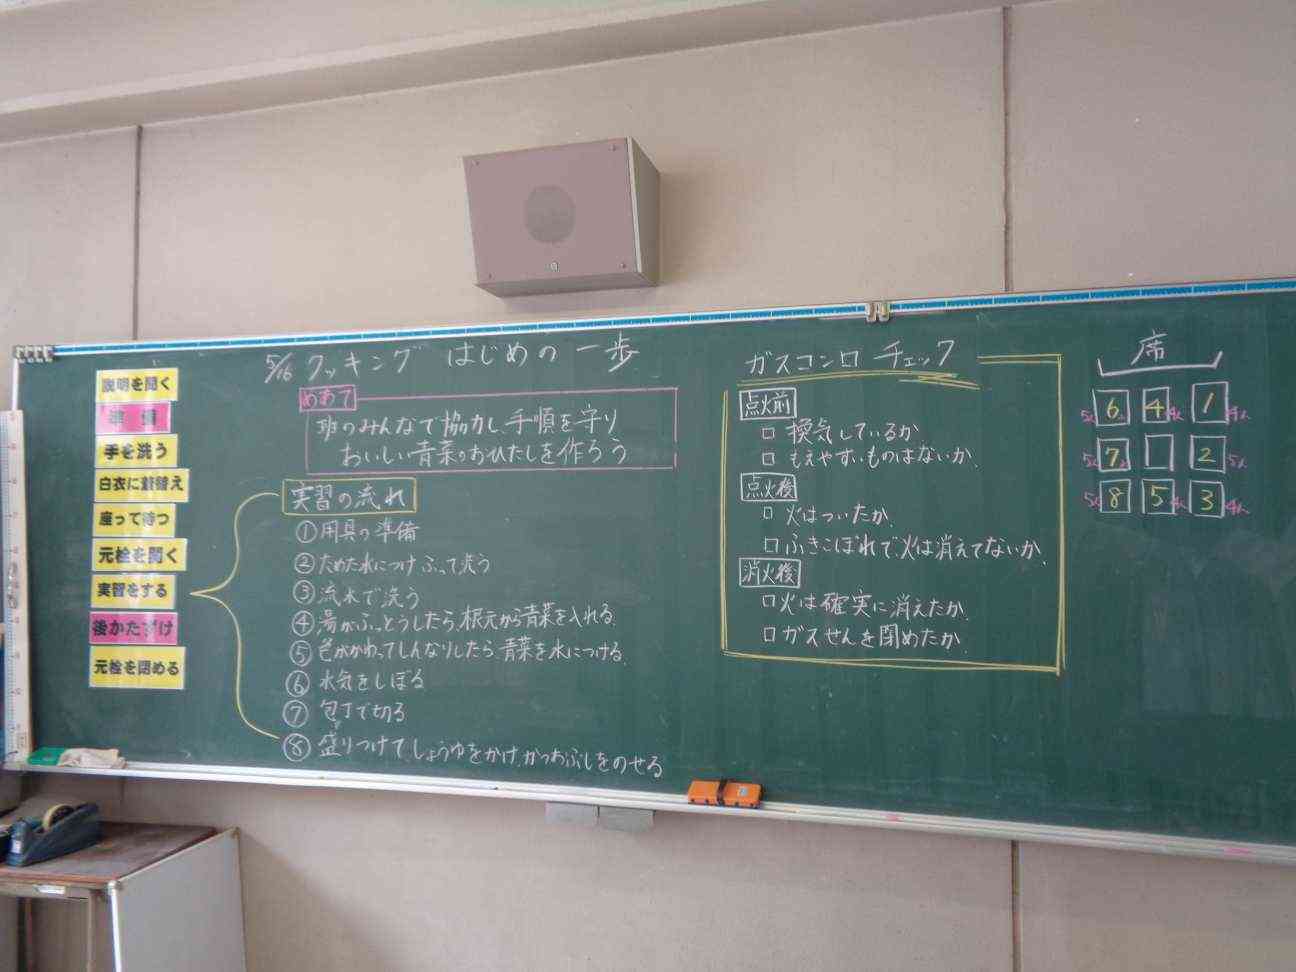 5/16 クッキング はじめの一歩
説明を聞く
準備
手を洗う
白衣に着替え
座って待つ
元栓を開く
実習をする
後かたずけ
元栓を閉める
めあて
班のみんなで協力し、手順を守り
おいしい青菜のおひたしを作ろう
実習の流れ
①用具の準備
②ためた水につけ ふって洗う
③流水で洗う
④湯がふっとうしたら、根元から青菜を入れる。
⑤色がかわってしんなりしたら、青菜を水につける。
⑥水気をしぼる
⑦包丁で切る
⑧盛りつけて、しょうゆをかけ、かつおぶしをのせる
ガスコンロ チェック
点火前
□ 換気しているか
□ もえやすいものはないか。
点火後
□ 火はついたか。
□ ふきこぼれで火は消えてないか。
消火後
□火は確実に消えたか。
□ガスせんを閉めたか。
席
5人 6 4 4人 1 4人
5人 7 2 5人
5人 8 5 4人 3 4人